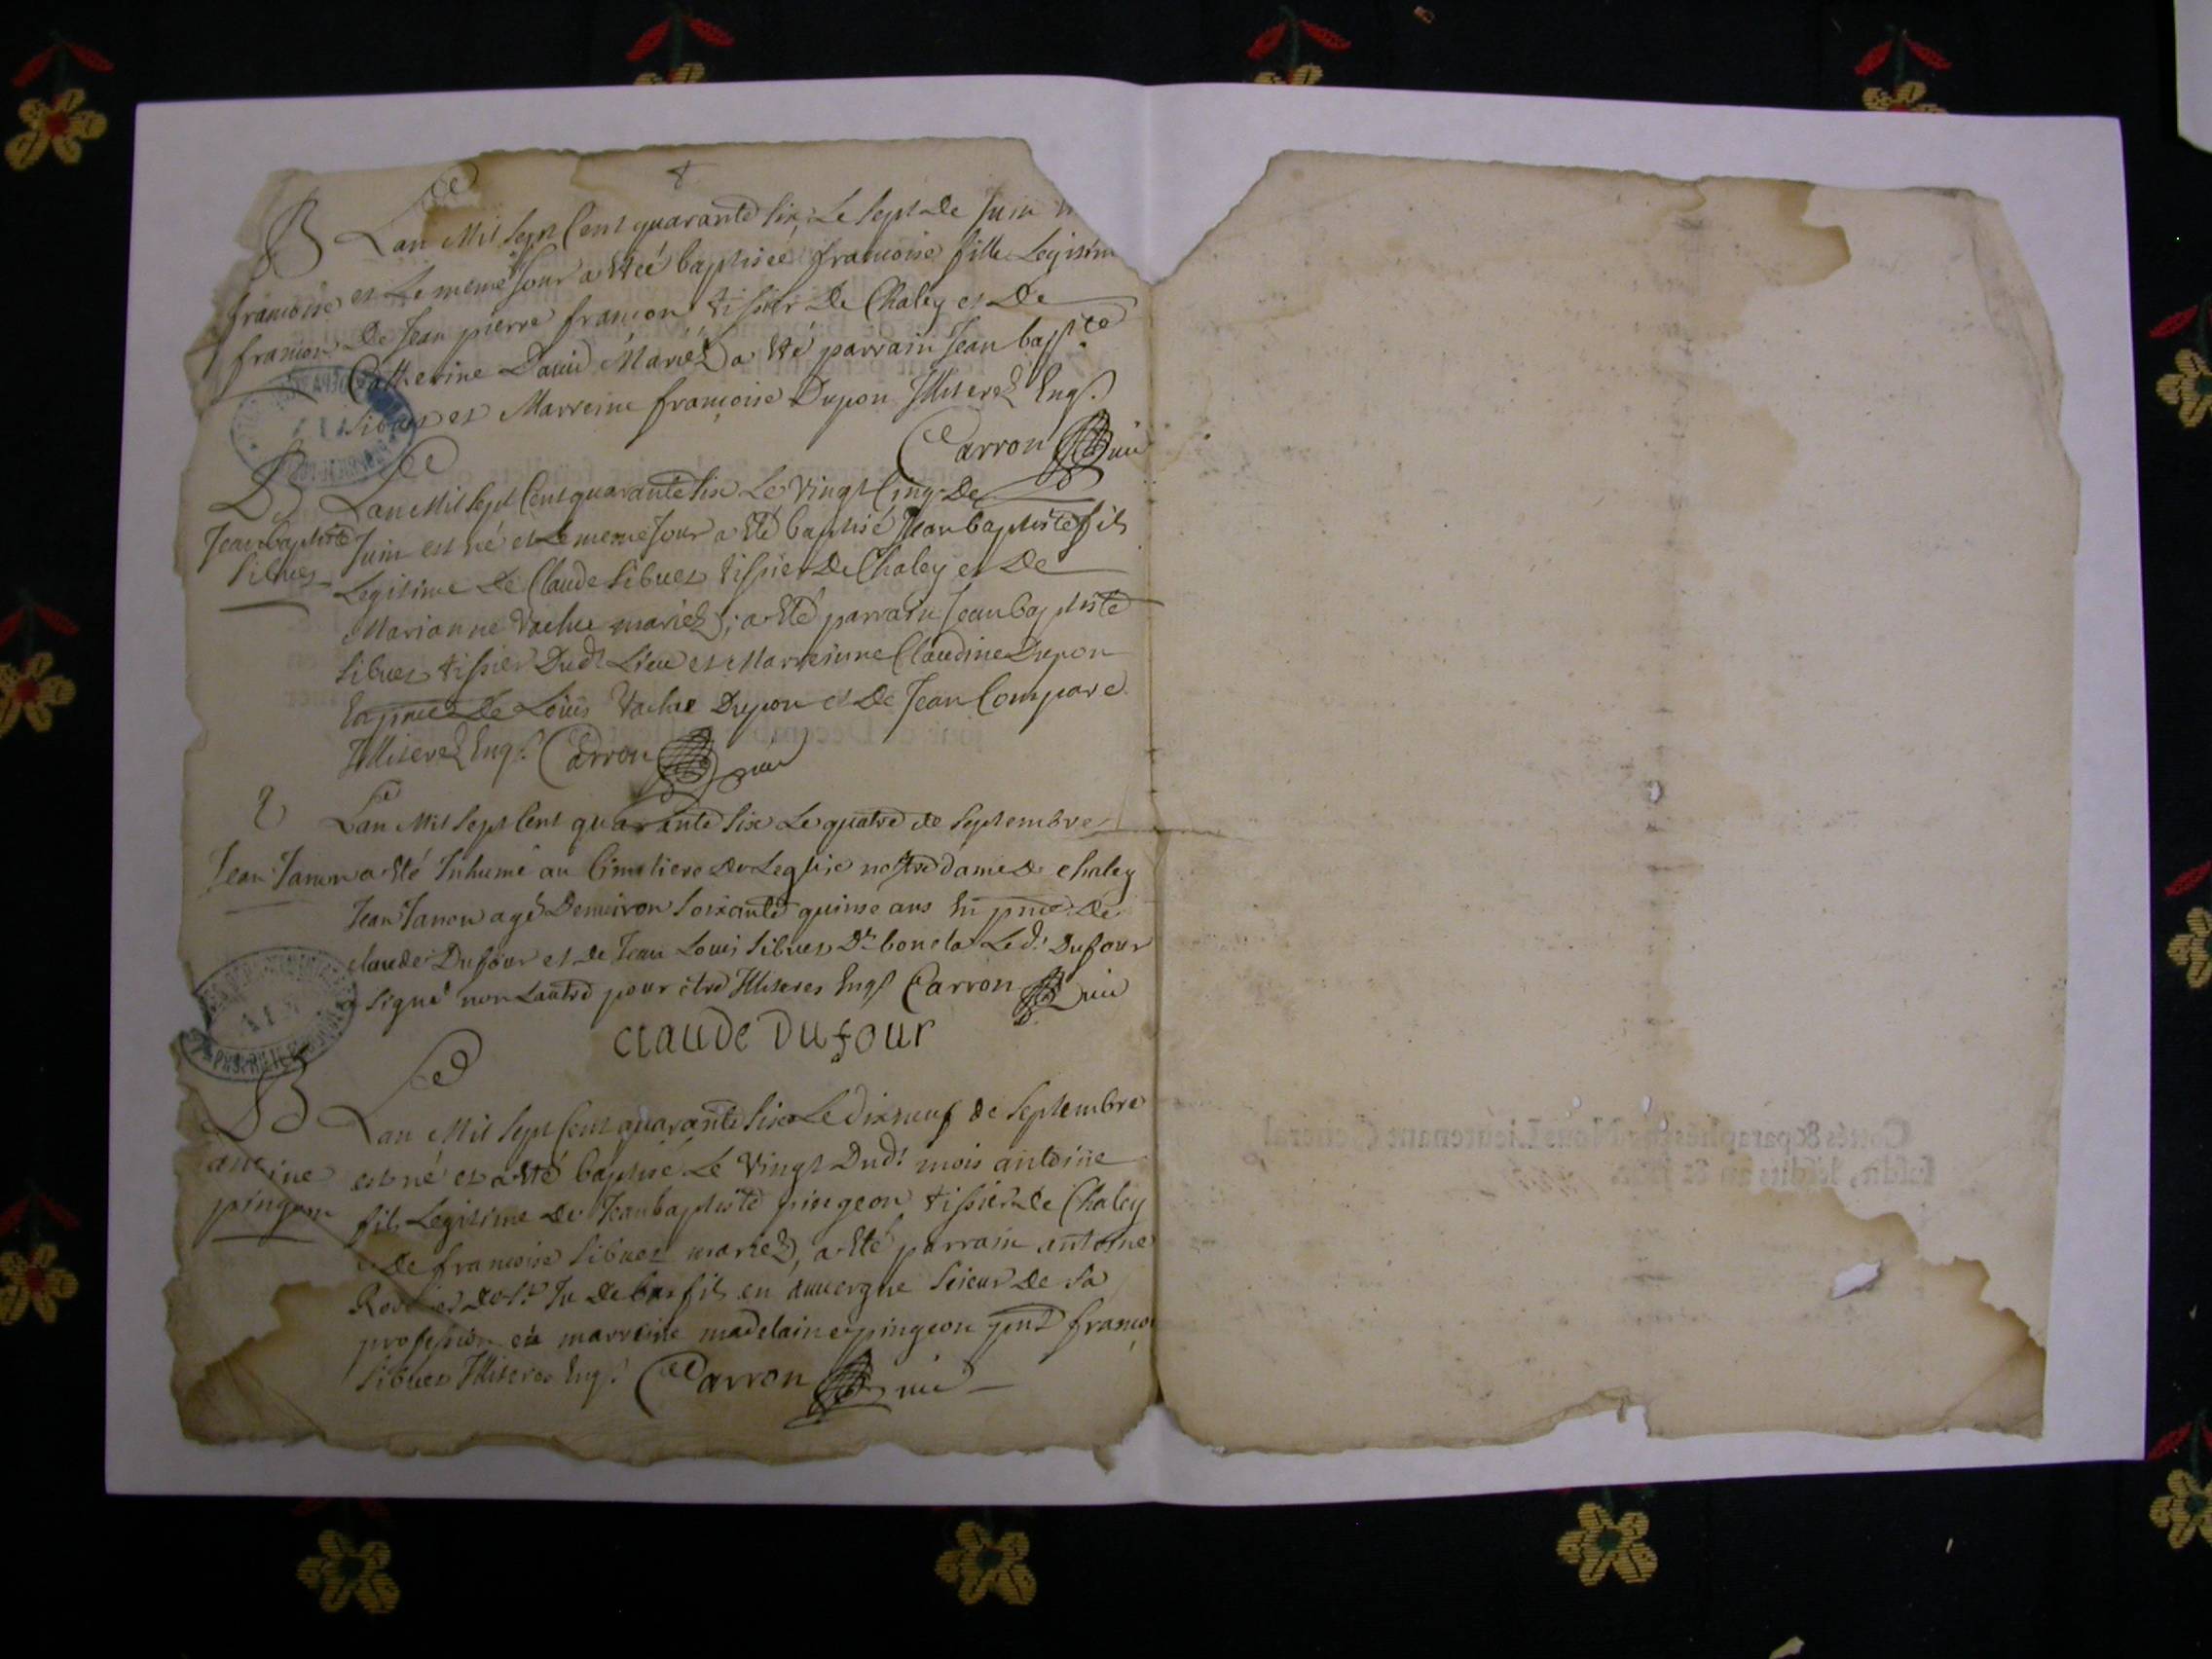 B Lan Mil Sept Cent quarante Six, Le Sept De Juin
francoise et Le meme Jour a Eteé baptiseé francoise fille Legitim
francon De Jean pierre francon tissier De Chaley et De
Catherine David Mariéz a Eté parrain Jean bapte
Sibuet et Marreine françoise Dupon Illiterez Enqs.
Carron
B Lan Mil Sept Cent quarante Six Le Vingt Cinq De
Jean baptiste Juin est né et Le meme Jour a Eté baptisé Jean baptiste fils
Sibuet Legitime De Claude Sibuet tissier De Chaley et De
Marianne Vachee mariéz; a Eté parrain Jean baptiste
Sibuet tissier Dudt Lieu et Marreinne Claudine Dupon
En pnce De Louis Vachee Dupon et De Jean Compare
Illiterez Enqs. Carron
Lan Mil Sept Cent quarante Six Le quatre de Septembre
Jean Janon a Eté Inhumé au Cimetiere De Leglise nostre dame De chaley
Jean Janon agé Denviron Soixante quinse ans En pnce De
claude Dufour et de Jean Louis Sibuet Led. Dufour
a Signé non Lautre pour être Illiteres Enqs Carron
claude Dufour
B Lan Mil Sept Cent quarante Six Le dixneuf de Septembre
antoine est né et a Eté baptisé Le Vingt Dudt mois antoine
pingeon fils Legitime De Jean baptiste pingeon tissier De Chaley
et De francoise Sibuet mariéz, a Eté parrain antoine
en auvergne Scieur De Sa
profession et marreine madelaine pingeon françoi
Sibuet Illiteres Enqs. Carron
Cottés & paraphés par Nous Lieutenant General
susdit, lesdits an & jour.